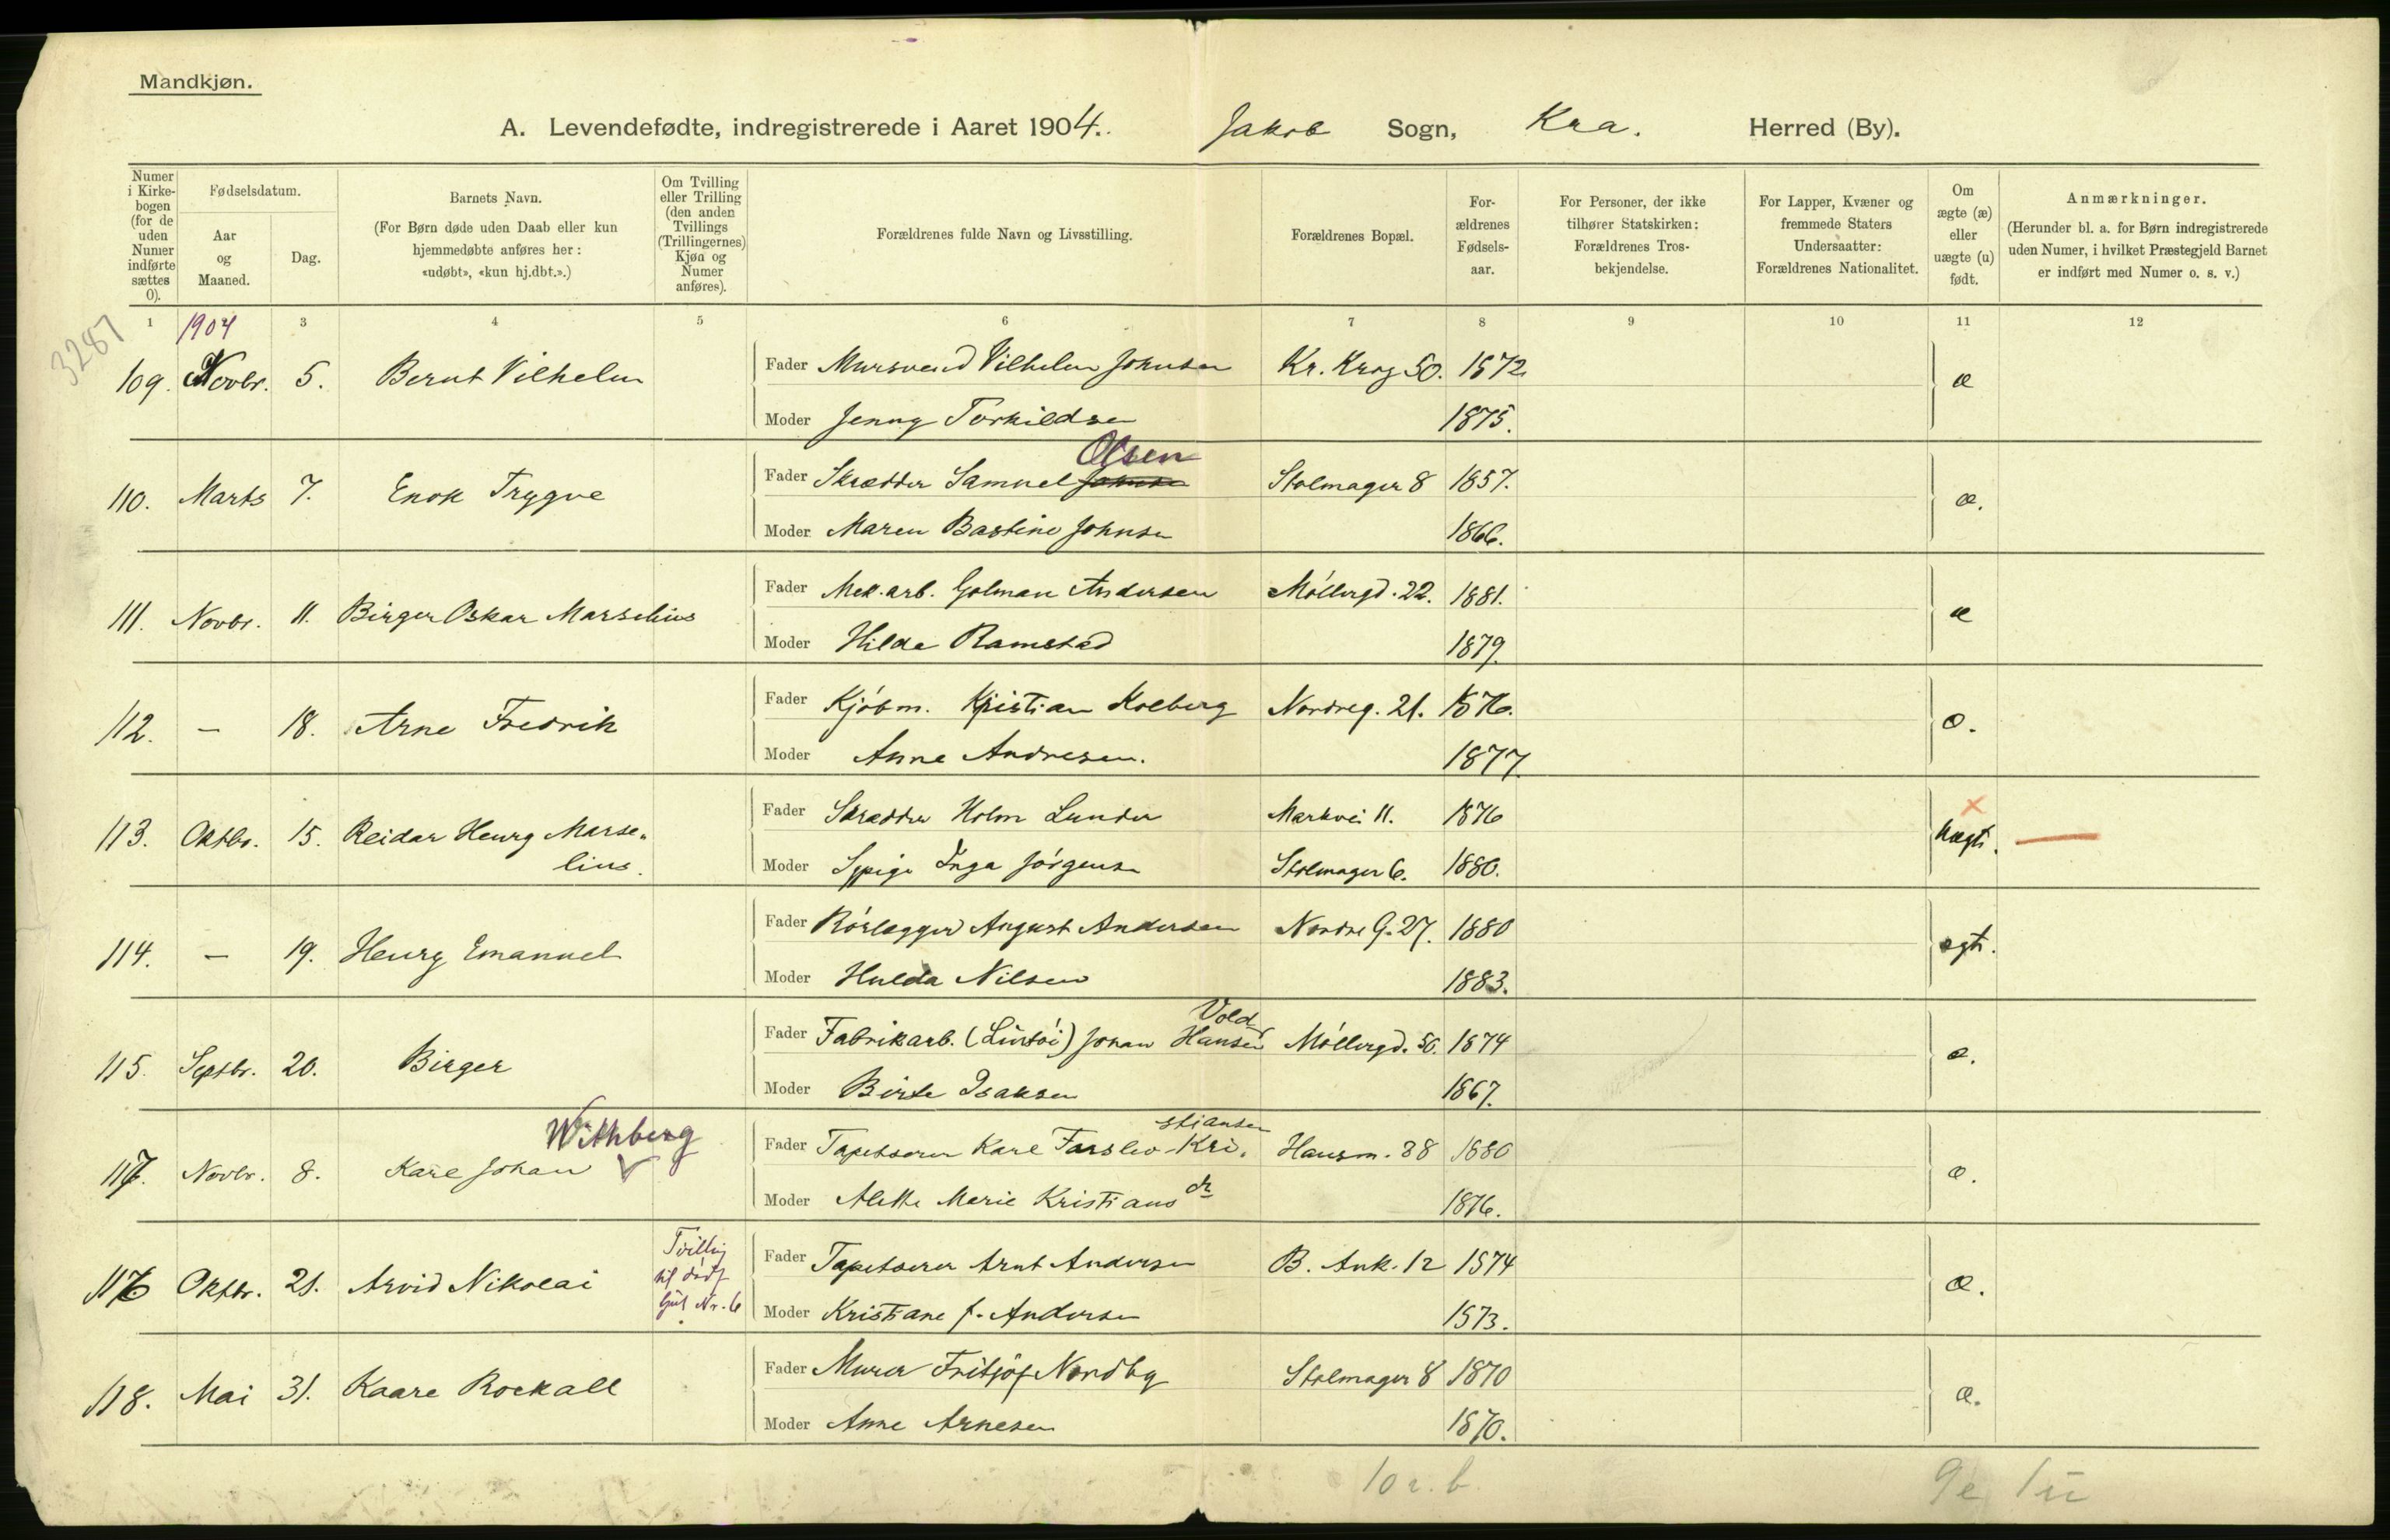 Mandkjøn.
A. Levendefødte, indregistrerede i Aaret 1904. Jakob Sogn, Kra. Herred (By).
Numer i Kirkebogen (for de uden Numer indførte sættes 0).
Fødselsdatum.
Aar og Maaned.
Dag.
Barnets Navn.
(For Børn døde uden Daab eller kun hjemmedøbte anføres her: «udøbt», «kun hj.dbt.».)
Om Tvilling eller Trilling (den anden Tvillings (Trillingernes) Kjøn og Numer anføres).
Forældrenes fulde Navn og Livsstilling.
Forældrenes Bopæl.
Forældrenes Fødselsaar.
For Personer, der ikke tilhører Statskirken: Forældrenes Trosbekjendelse.
For Lapper, Kvæner og fremmede Staters Undersaatter: Forældrenes Nationalitet.
Om ægte (æ) eller uægte (u) født.
Anmærkninger.
(Herunder bl. a. for Børn indregistrerede uden Numer, i hvilket Præstegjeld Barnet er indført med Numer o. s. v.)
1 1904 3 4 5 6 7 8 9 10 11 12
3287
109. Novbr. 5. Bernt Vilhelm Fader Mursvend Vilhelm Johnsen Kr. Krog 50. 1872 æ
Moder Jenny Torkildsen 1875.
Olsen
110. Marts 7. Enok Trygve Fader Skrædder Samuel Johnsen Stolmager 8 1857. æ.
Moder Maren Bastine Johnsen 1866.
111. Novbr. 11. Birger Oskar Marselius Fader Mek. arb. Golman Andersen Møllergd. 22. 1881. æ
Moder Hilda Ramstad 1879.
112. — 18. Arne Fredrik Fader Kjøbm. Kristian Kolberg Nordreg. 21. 1876. æ.
Moder Anne Andresen. 1877.
113. Oktbr. 15. Reidar Henry Marselius. Fader Skrædder Holm Lunder Markvei 11. 1876 uægt.
Moder Sypige Inga Jørgensen Stolmager 6. 1880.
114. — 19. Henry Emanuel Fader Rørlægger August Andersen Nordre G. 27. 1880 ægt.
Moder Hulda Nilsen 1883.
Vold
115. Septbr. 20. Birger Fader Fabrikarb. (Lintøi) Johan Hansen Møllergd. 50. 1874 æ.
Moder Birte Isaksen 1867.
Withberg
117. Novbr. 8. Karl Johan Fader Tapetserer Karl Farslev Kristiansen Hausm. 38 1880 æ.
Moder Alette Marie Kristiansdr 1876.
116 Oktbr. 21. Arvid Nikolai Tvilling til dødf. Gut Nr. 6 Fader Tapetserer Arnt Andersen B. Ank. 12 1874 æ.
Moder Kristiane f. Andersen 1873.
118. Mai 31. Kaare Rockall Fader Murer Fritjof Nordby Stolmager 8 1870 æ.
Moder Anne Arnesen 1870.
10 r. b. 9e 1u